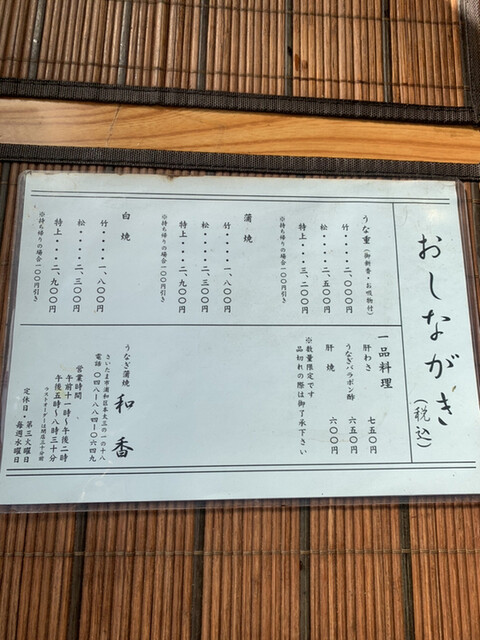 おしながき(税込)
うな重(御新香・お吸物付)
竹・・・・二、〇〇〇円
松・・・・二、五〇〇円
特上・・・三、二〇〇円
※持ち帰りの場合一〇〇円引き
蒲焼
竹・・・・一、八〇〇円
松・・・・二、三〇〇円
特上・・・二、九〇〇円
※持ち帰りの場合一〇〇円引き
白焼
竹・・・・一、八〇〇円
松・・・・二、三〇〇円
特上・・・二、九〇〇円
※持ち帰りの場合一〇〇円引き
一品料理
肝わさ 七五〇円
うなぎバラポン酢 六五〇円
肝焼 六〇〇円
※数量限定です
品切れの際は御了承下さい
うなぎ蒲焼 和香
さいたま市浦和区本太三の一の十八
電話 〇四八-八八四-〇六四九
営業時間
午前十一時~午後二時
午後五時~八時三十分
ラストオーダーは閉店三十分前
定休日・第三火曜日
毎週水曜日